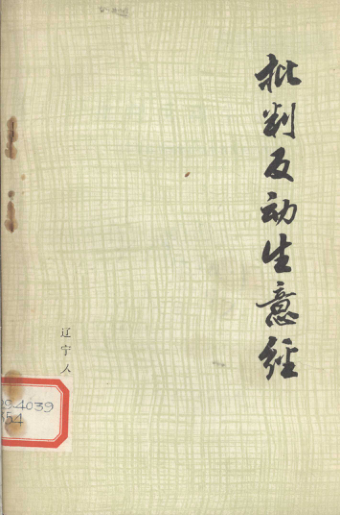 批判反动生意经
辽宁人
4039
54